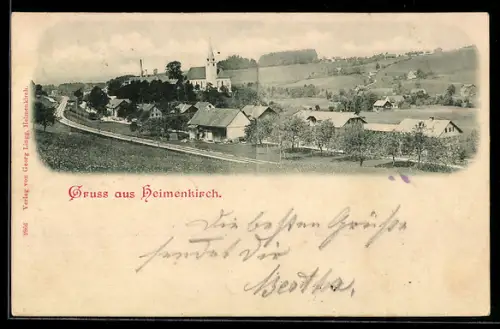 Gruss aus Heimenkirch.
Die besten Grüße
sendet Dir
Bertha.
Verlag von Georg Lingg, Heimenkirch.